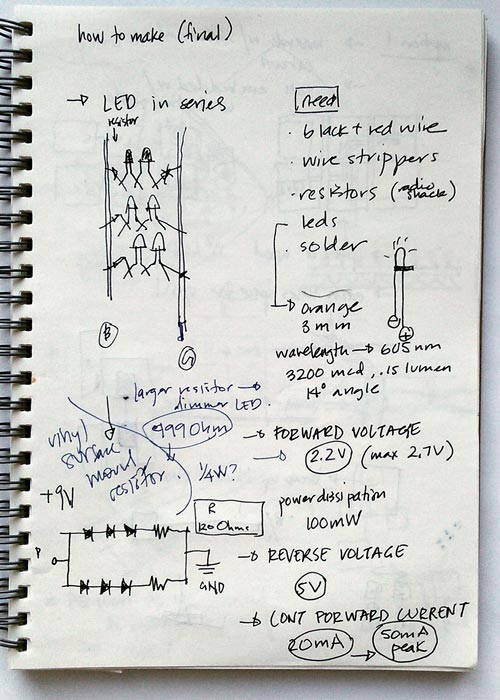 how to make (final)
→ LED in series
resistor
need
· black + red wire
· wire strippers
· resistors (radio shack)
leds
· solder
→ orange
3mm
wavelength → 605nm
3200 mcd, .15 lumen
14° angle
B
G
· larger resistor →
dimmer LED.
999 Ohm
vinyl
surface
mount
resistor.
1/4W?
→ FORWARD VOLTAGE
→ 2.2V (max 2.7V)
power dissipation
100mW
+9V
R
120 Ohms
GND
→ REVERSE VOLTAGE
5V
→ CONT FORWARD CURRENT
20mA → 50mA
peak